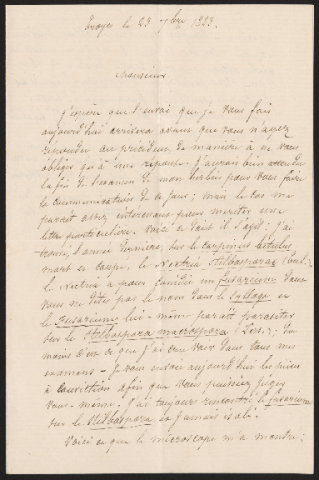 Troyes le 23 7bre 1883.
Monsieur
J'espère que l'envoi que je vous fais
aujourd'hui arrivera avant que vous n'ayez
répondu au précédent de manière à ne vous
obliger qu'à une réponse. J'aurais bien attendu
la fin de l'examen de mon herbier pour vous faire
la communication de ce jour; mais le cas me
paraît assez intéressant pour mériter une
lettre particulière. Voici ce dont il s'agit: j'ai
trouvé, l'année dernière, sur le Carpinus betulus
mort en coupe, le Nectria Stilbosporae (Tul.)
le Nectria a pour conidie un Fusarium dont
vous ne dites pas le nom dans le Sylloge et
le Fusarium lui-même paraît parasiter
sur le Stilbospora macrosperma (Pers.); du
moins c'est ce que j'ai cru voir dans tous mes
examens - Je vous envoie aujourd'hui les pièces
à conviction afin que vous puissiez juger
vous-même. J'ai toujours rencontré le Fusarium
sur le Stilbospora et jamais isolé.
Voici ce que le microscope m'a montré;